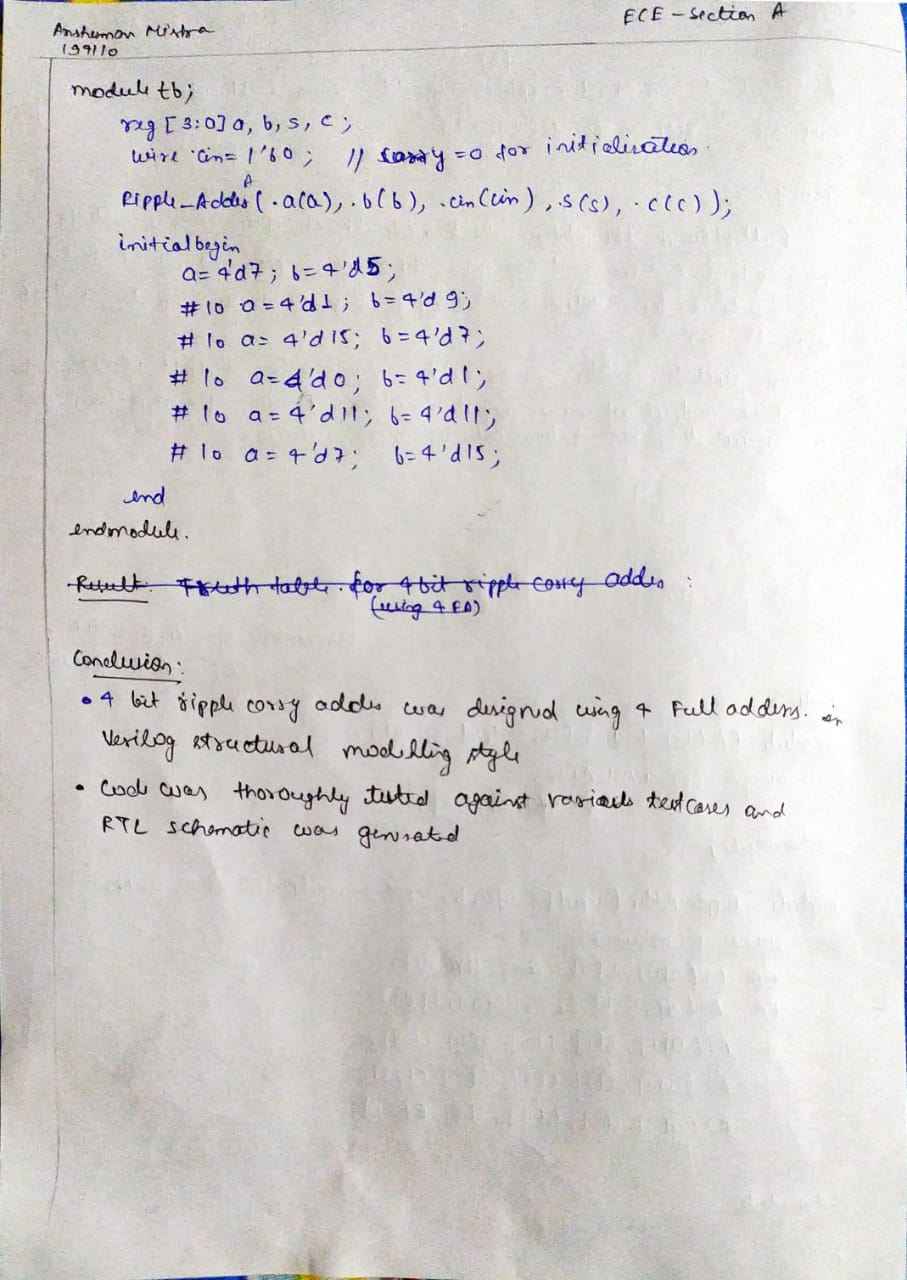 Anshuman Mishra
ECE - Section A
199110
module tb;
reg [3:0] a, b, s, c;
wire cin = 1'b0; // carry = 0 for initialization.
A
Ripple_Adder (.a(a), .b(b), .cin(cin), .s(s), .c(c));
initial begin
a = 4'd7; b = 4'd5;
#10 a = 4'd1; b = 4'd9;
#10 a = 4'd15; b = 4'd7;
#10 a = 4'd0; b = 4'd1;
#10 a = 4'd11; b = 4'd11;
#10 a = 4'd7; b = 4'd15;
end
endmodule.
Result: Truth table for 4 bit ripple carry adder :
(using 4 FA)
Conclusion:
• 4 bit ripple carry adder was designed using 4 Full adders. in
Verilog structural modelling style
• Code was thoroughly tested against various testcases and
RTL schematic was generated